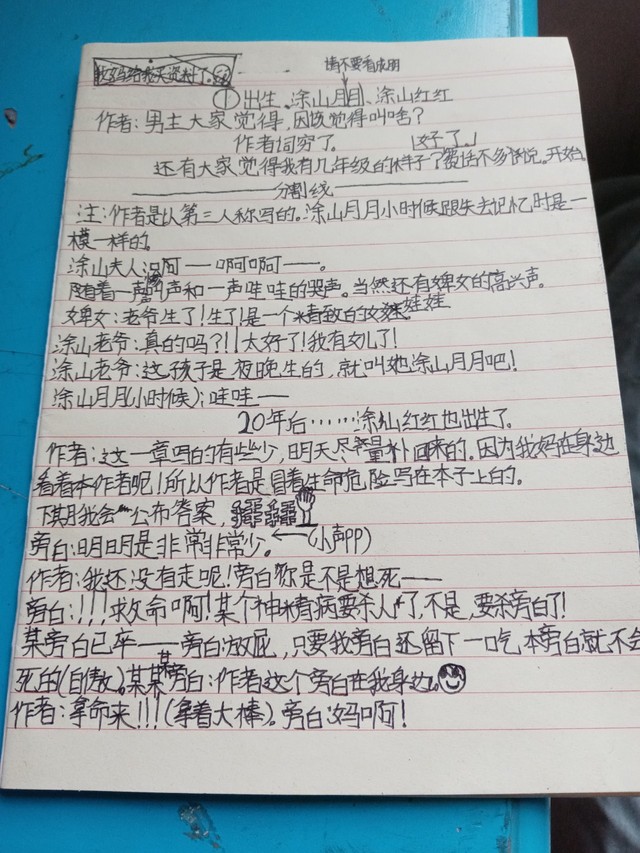 我妈给我买资料了。
请不要看成朋
①出生、涂山月月、涂山红红
作者：男主大家觉得，因该觉得叫啥？
作者词穷了。 「好了。」
还有大家觉得我有几年级的样子了废话不多说。开始。
分割线
注：作者是以第三人称写的。涂山月月小时候跟失去记忆时是一
模一样的。
涂山夫人：啊——啊啊——。
随着一声声和一声哇哇的哭声。当然还有婢女的高兴声。
婢女：老爷生了！生了！是一个精致的女娃娃
涂山老爷：真的吗？！！太好了！我有女儿了！
涂山老爷：这孩子是夜晚生的，就叫她涂山月月吧！
涂山月月(小时候)：哇哇——
20年后……涂山红红也出生了。
作者：这一章写的有些少，明天尽量补回来的。因为我妈在身边
看着本作者呢！所以作者是冒着生命危险写在本子上的。
下期我会公布答案，
旁白：明明是非常非常少。←(小声PP)
作者：我还没有走呢！旁白你是不是想死——
旁白：！！！救命啊！某个神精病要杀人了，不是，要杀旁白了！
某旁白已卒——旁白：放屁，只要我旁白还留下一口气本旁白就不会
死的(自傲)。某某某旁白：作者这个旁白在我身边。
作者：拿命来！！！(拿着大棒)。旁白：妈啊！